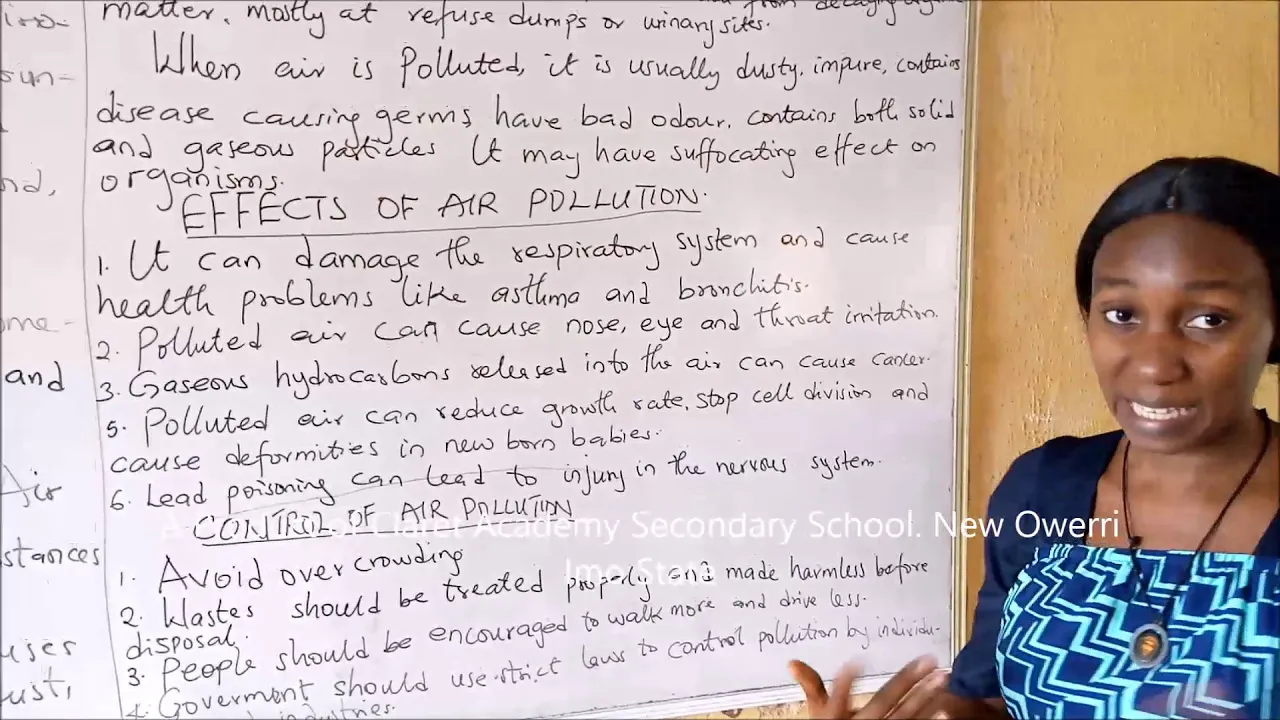 matter, mostly at refuse dumps or urinary sites.
When air is Polluted, it is usually dusty, impure, contains
disease causing germs, have bad odour, contains both solid
and gaseous particles It may have suffocating effect on
organisms.
EFFECTS OF AIR POLLUTION.
1. It can damage the respiratory system and cause
health problems like asthma and bronchitis.
2. Polluted air can cause nose, eye and throat irritation.
3. Gaseous hydrocarbons released into the air can cause cancer.
5. Polluted air can reduce growth rate, stop cell division and
cause deformities in new born babies.
6. Lead poisoning can lead to injury in the nervous system.
CONTROL OF AIR POLLUTION
1. Avoid overcrowding
2. Wastes should be treated properly and made harmless before
disposal.
3. People should be encouraged to walk more and drive less.
4. Goverment should use strict laws to control pollution by individu-
industries.
and
Air
stances
Claret Academy Secondary School. New Owerri
Imo State